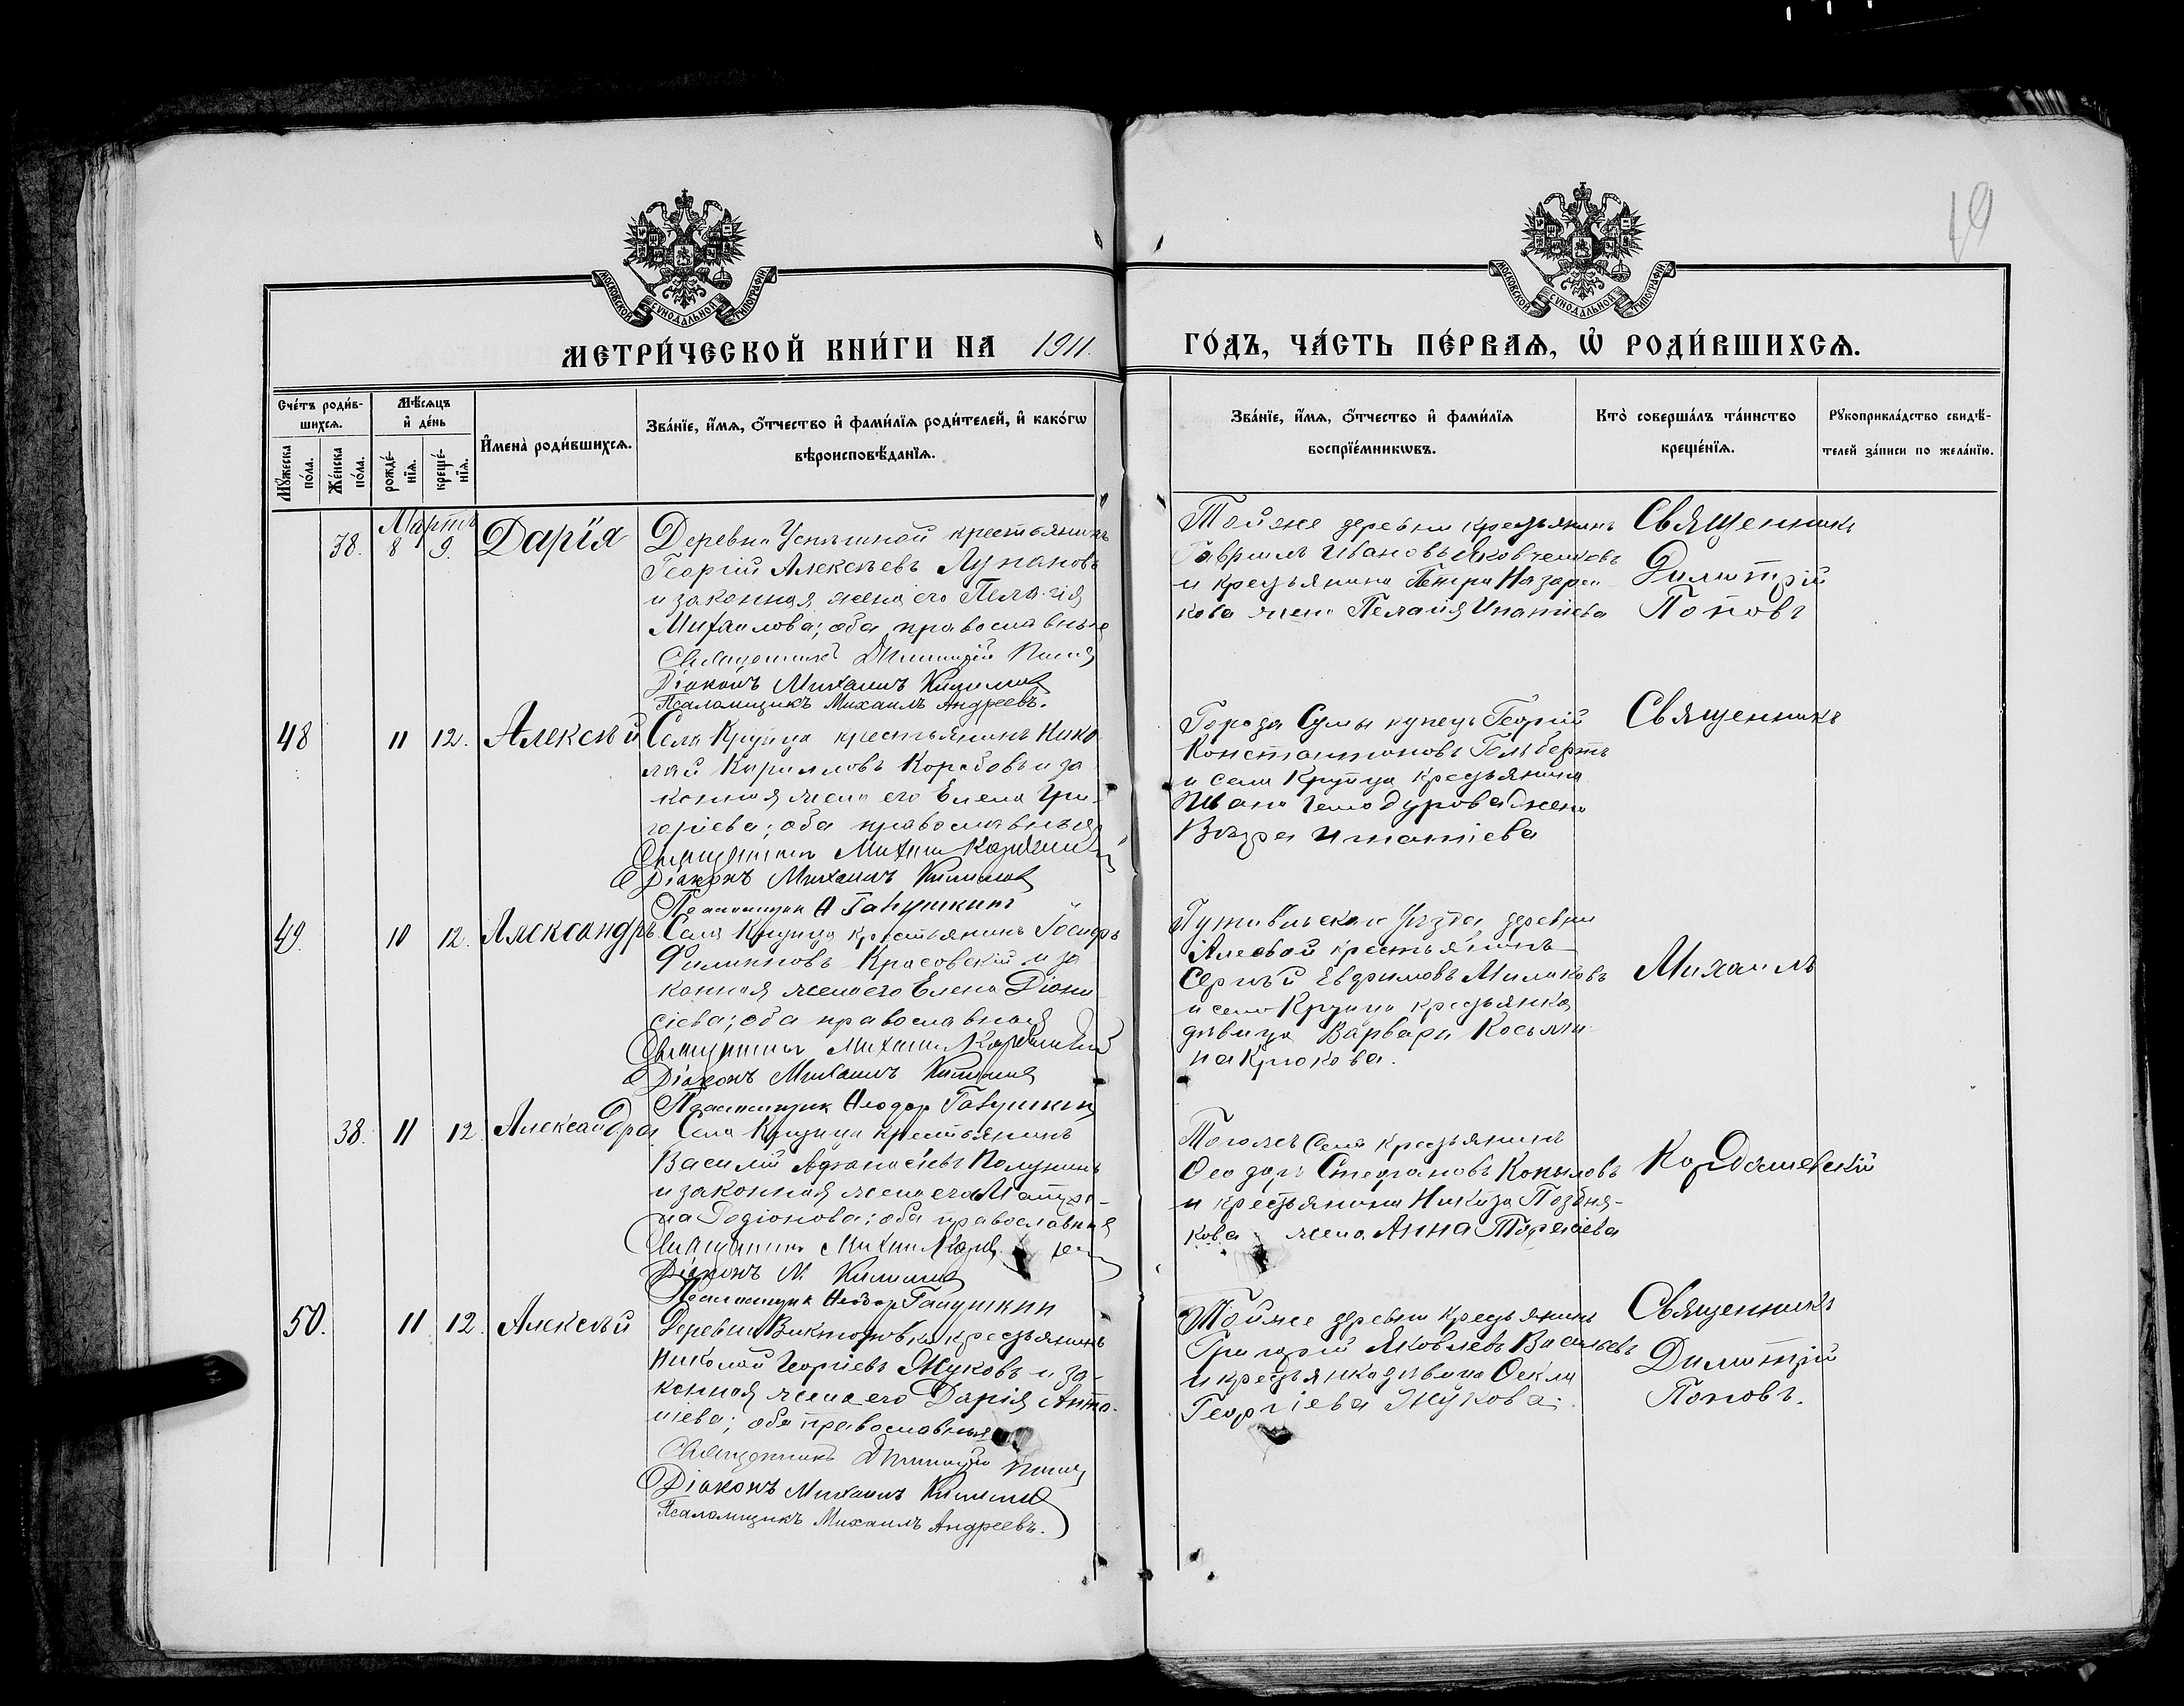 19
МОСКОВСКОЙ СѴНОДАЛЬНОЙ ТИПОГРАФІИ
МОСКОВСКОЙ СѴНОДАЛЬНОЙ ТИПОГРАФІИ
МЕТРИ́ЧЕСКОЙ КНИ́ГИ НА 1911.
ГО́ДЪ, ЧА́СТЬ ПЕ́РВАѦ, Ѡ҆ РОДИ́ВШИХСѦ.
Сче́тъ роди́в-
шихсѧ.
Мꙋ́жеска
по́ла.
Же́нска
по́ла.
Мѣ́сѧцъ
и҆ де́нь
рожде́-
нїѧ.
креще́-
нїѧ.
И҆мена̀ роди́вшихсѧ.
Зва́нїе, и҆́мѧ, ѻ҆́тчество и҆ фами́лїѧ роди́телей, и҆ како́гѡ
вѣроисповѣ́данїѧ.
Зва́нїе, и҆́мѧ, ѻ҆́тчество и҆ фами́лїѧ
воспрїе́мникѡвъ.
Кто̀ соверша́лъ та́инство
креще́нїѧ.
Рꙋкоприкла́дство свидѣ́-
телей за́писи по жела́нїю.
Мартъ
38. 8 9. Дарія
Деревни крестьянинъ
Георгій Алексѣевъ Лупановъ
и законная жена его Пелагія
Михаилова; оба православные
Священникъ Димитрій Поповъ
Діаконъ Михаилъ
Псаломщикъ Михаилъ Андреевъ.
Тойже деревни крестьянинъ
Гавріилъ Ивановъ Яковченковъ
и крестьянина Петра Назарен
кова жена Пелагія Ипатіева
Священникъ
Димитрій
Поповъ
48 11 12. Алексѣй
Села Крупца крестьянинъ Нико
лай Кирилловъ Коробовъ и за
конная жена его Елена Гри-
горіева; оба православные
Священникъ Михаилъ Кордашевскій
Діаконъ Михаилъ
Псаломщик Ѳ Галушкинъ
Города Сумы купецъ Георгій
Константиновъ Гельбертъ
и села Крупца крестьянина
Ивана жена
Вѣра Игнатіева
Священникъ
49. 10 12. Александръ
Села Крупца крестьянинъ Іосифъ
Филипповъ Красовскій и за
конная жена его Елена Діони
сіева; оба православные
Священникъ Михаилъ Кордашевскій
Діаконъ Михаилъ
Псаломщик Ѳеодор Галушкин
Путивльскаго уѣзда деревни
крестьянинъ
Сергѣй Евфимовъ Милаковъ
и села Крупца крестьянка
дѣвица Варвара Косьми-
на Крюкова.
Михаилъ
38. 11 12 Александра
Села Крупца крестьянинъ
Василій Афанасіевъ Полунинъ
и законная жена его Матро-
на Родіонова; оба православные
Священникъ Михаилъ
Діаконъ М.
Псаломщик Ѳеодор Галушкин
Тогожъ села крестьянинъ
Ѳеодоръ Стефановъ Копыловъ
и крестьянина Никиты Поздня-
кова жена Анна
Кордашевскій
50. 11 12. Алексѣй
Деревни Викторовки крестьянинъ
Николай Георгіевъ Жуковъ и за-
конная жена его Дарія Анто-
ніева; оба православные
Священникъ Димитрій Поповъ
Діаконъ Михаилъ
Псаломщикъ Михаилъ Андреевъ.
Тойже деревни крестьянинъ
Григорій Яковлевъ Васильевъ
и крестьянка дѣвица Ѳекла
Георгіева Жукова.
Священникъ
Димитрій
Поповъ.